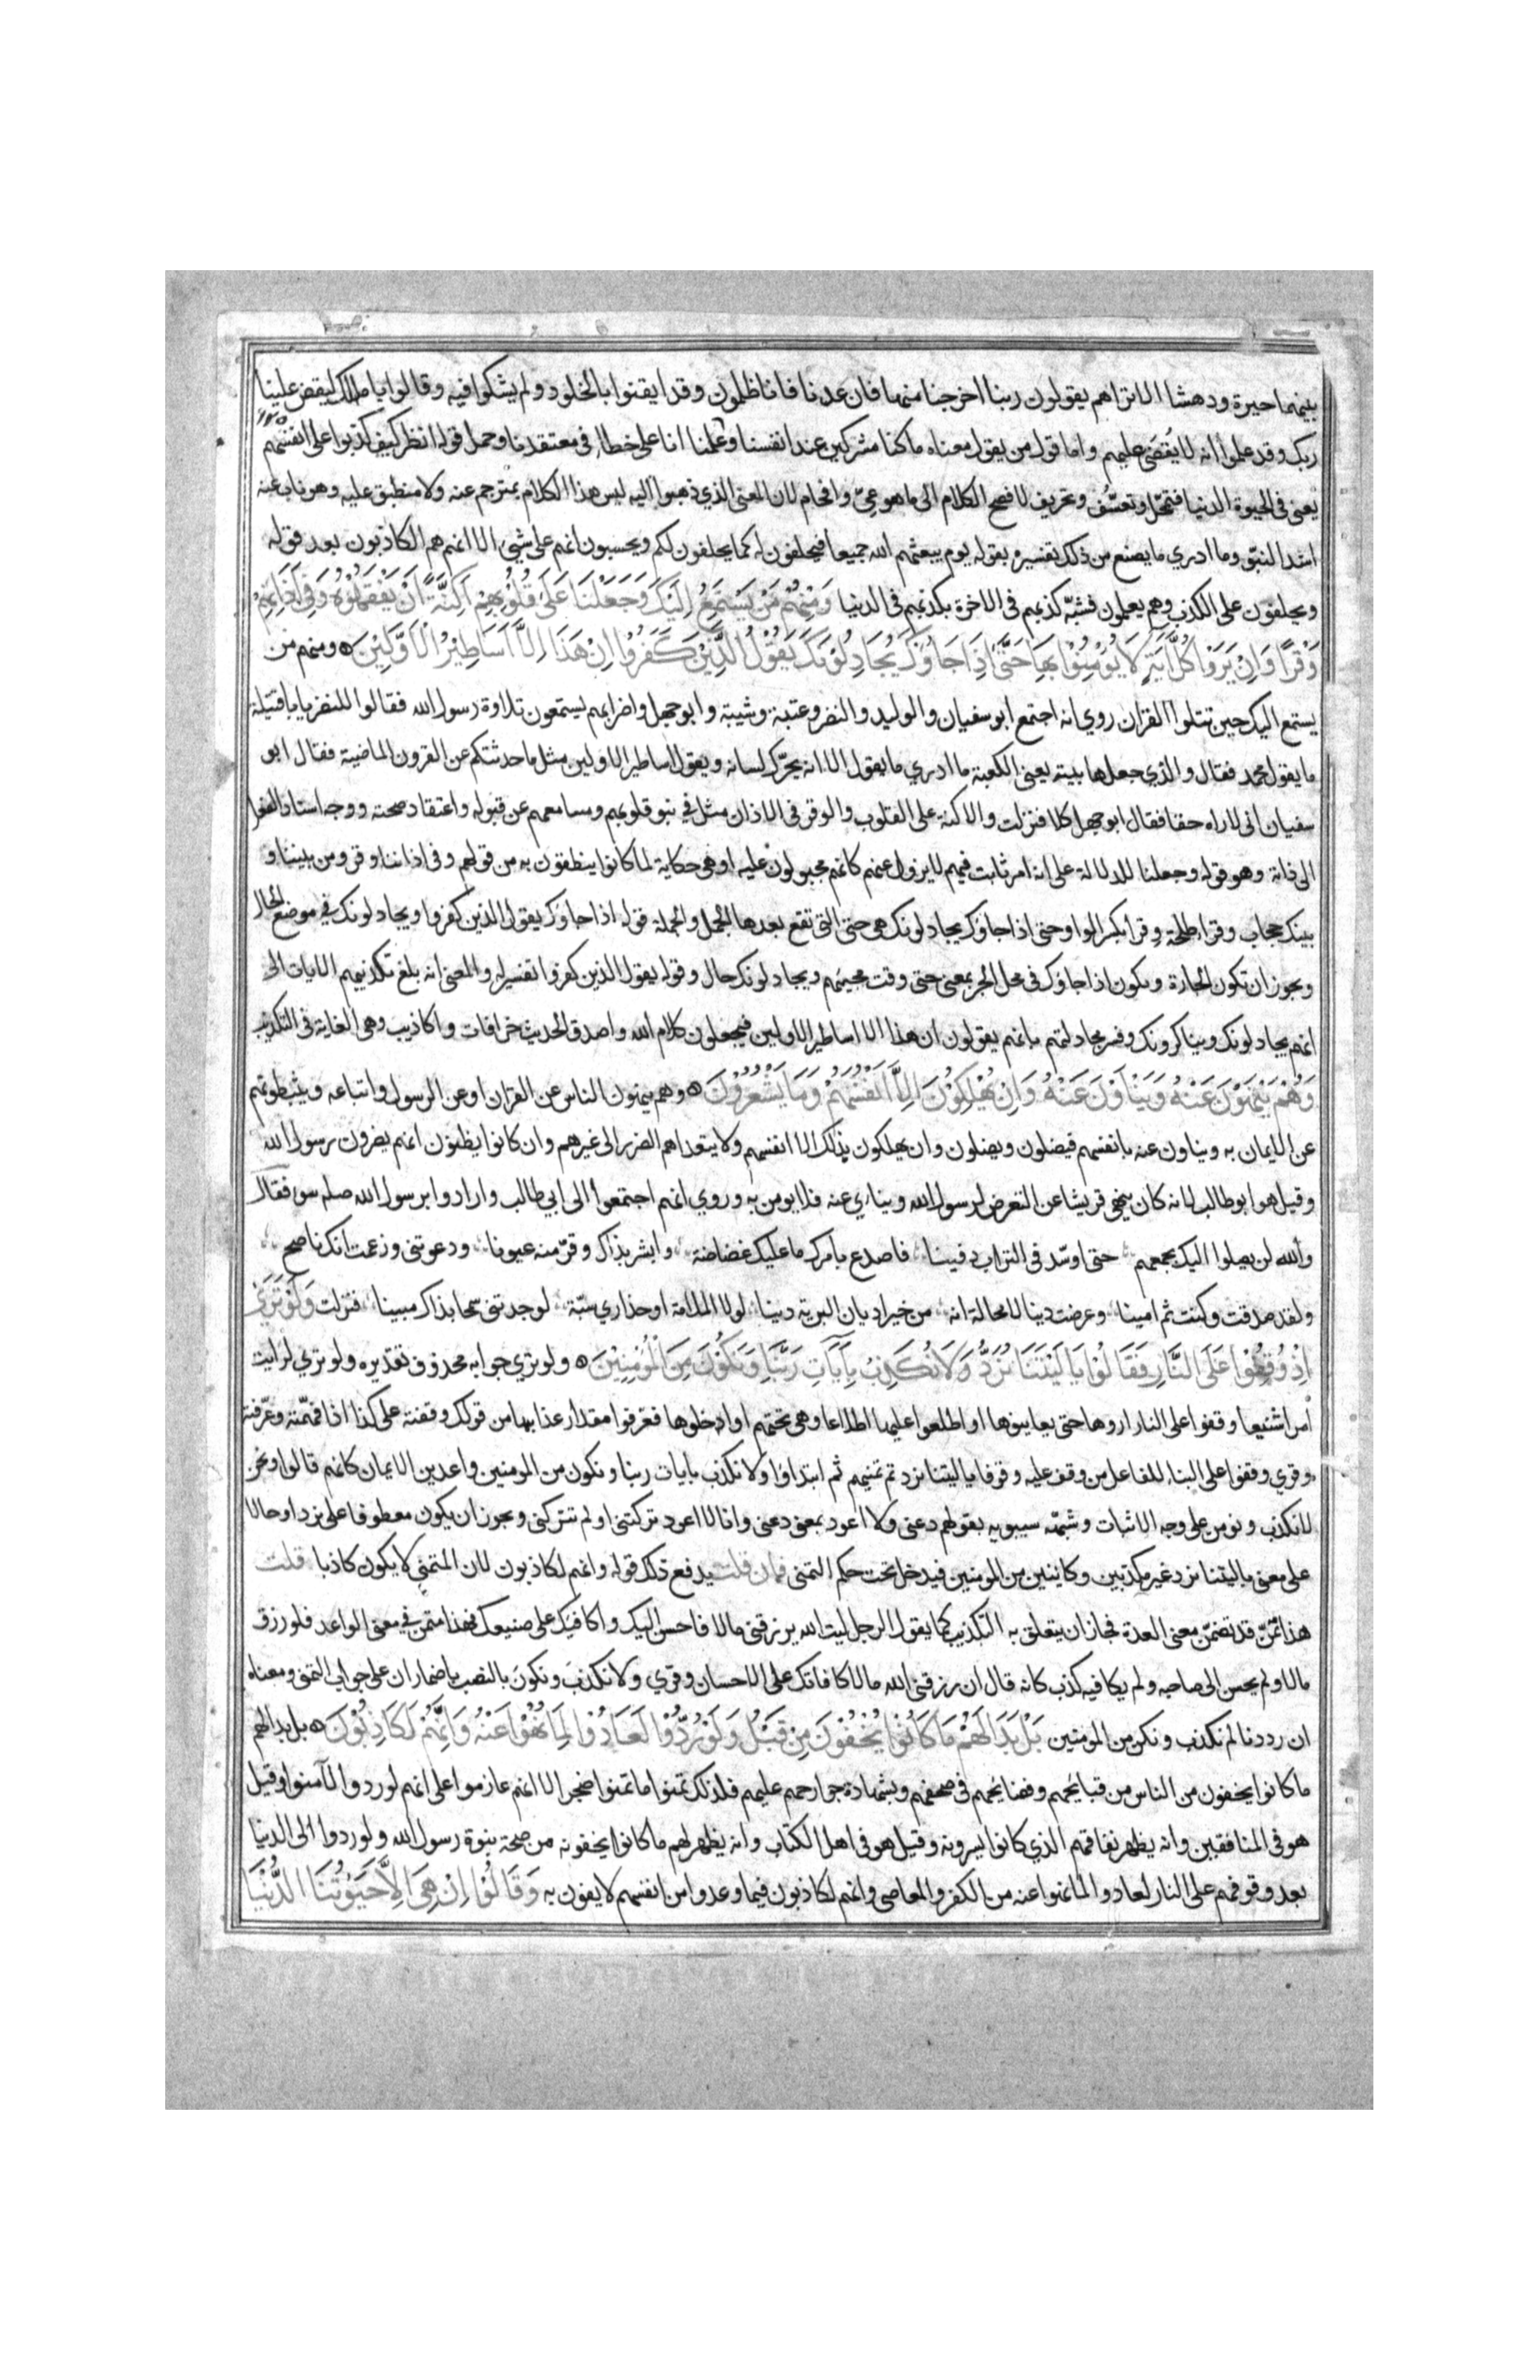 بينهما حيرة ودهشا الا تراهم يقولون ربنا اخرجنا منها فان عدنا فانا ظالمون وقد ايقنوا بالخلود ولم يشكوا فيه وقالوا يا مالك ليقض علينا
ربك وقد علموا انه لا يُقضَى عليهم واما قول من يقول معناه ما كنا مشركين عند انفسنا وما علمنا انا على خطاٍ في معتقدنا وحمل قوله انظر كيف كذبوا على انفسهم
يعني في الحيوة الدنيا فتمحّل وتعسُّف وتحريف لافصح الكلام الى ما هو عِيّ وافحام لان المعنى الذي ذهبوا اليه ليس هذا الكلام بمترجم عنه ولا منطبق عليه وهو ناب عنه
اشد النبوّ وما ادري ما يصنع من ذلك تفسيره بقوله يوم يبعثهم الله جميعا فيحلفون له كما يحلفون لكم ويحسبون انهم على شيئ الا انهم هم الكاذبون بعد قوله
ويحلفون على الكذب وهم يعلمون فشبّه كذبهم في الاخرة بكذبهم في الدنيا وَمِنْهُمْ مَنْ يَسْتَمِعُ اِلَيْكَ وَجَعَلْنَا عَلَى قُلُوبِهِمْ اَكِنَّةً اَنْ يَفْقَهُوْهُ وَفِي اٰذَانِهِمْ
وَقْرًا وَاِنْ يَرَوْا كُلَّ اٰيَةٍ لَا يُؤْمِنُوْا بِهَا حَتَّى اِذَا جَاؤُكَ يُجَادِلُوْنَكَ يَقُوْلُ الَّذِيْنَ كَفَرُوْا اِنْ هَذَا اِلَّا اَسَاطِيْرُ الْاَوَّلِيْنَ ومنهم من
يستمع اليك حين تتلوا القران روي انه اجتمع ابو سفيان والوليد والنضر وعتبة وشيبة وابو جهل واضرابهم يستمعون تلاوة رسول الله فقالوا للنضر يا با قتيلة
ما يقول محمد فقال والذي جعلها بيته يعني الكعبة ما ادري ما يقول الا انه يحرّك لسانه ويقول اساطير الاولين مثل ما حدثتكم عن القرون الماضية فقال ابو
سفيان اني لاراه حقا فقال ابو جهل كلا فنزلت والاكنة على القلوب والوقر في الاذان مثل في نبو قلوبهم ومسامعهم عن قبوله واعتقاد صحته ووجه اسناد الفعل
الى ذاته وهو قوله وجعلنا للدلالة على انه امر ثابت فيهم لا يزول عنهم كانهم مجبولون عليه او هي حكاية لما كانوا ينطقون به من قولهم وفي اذاننا وقر ومن بيننا و
بينك حجاب وقرا طلحة وِقرا بكسر الواو حتى اذا جاؤك يجادلونك هي حتى التي تقع بعدها الجُمل والجملة قوله اذا جاؤك يقول الذين كفروا ويجادلونك في موضع الحال
ويجوز ان تكون الجارة ويكون اذا جاؤك في محل الجر بمعنى حتى وقت مجيئهم ويجادلونك حال وقوله يقول الذين كفروا تفسير له والمعنى انه بلغ تكذيبهم الايات الى
انهم يجادلونك ويناكرونك وفسر مجادلتهم بانهم يقولون ان هذا الا اساطير الاولين فيجعلون كلام الله واصدق الحديث خرافات واكاذيب وهي الغاية في التكذيب
وَهُمْ يَنْهَوْنَ عَنْهُ وَيَنْاَوْنَ عَنْهُ وَاِنْ يُهْلِكُوْنَ اِلَّا اَنْفُسَهُمْ وَمَا يَشْعُرُوْنَ وهم ينهون الناس عن القران او عن الرسول واتباعه ويثبطونهم
عن الايمان به ويناون عنه بانفسهم فيضلون ويضلون وان يهلكون بذلك الا انفسهم ولا يتعداهم الضرر الى غيرهم وان كانوا يظنون انهم يضرون رسول الله
وقيل هو ابو طالب لانه كان ينهى قريشا عن التعرض لرسول الله وينأى عنه فلا يومن به وروي انهم اجتمعوا الى ابي طالب وارادوا برسول الله صلعم سوءا فقال
والله لن يصلوا اليك بجمعهم حتى اوسّد في التراب دفينا فاصدع بامرك ما عليك غضاضة وابشر بذاك وقرّ منه عيونا ودعوتني وزعمت انك ناصح
ولقد صدقت وكنت ثم امينا وعرضت دينا لا محالة انه من خير اديان البرية دينا لولا الملامة او حذاري سبّة لوجدتني سمحا بذاك مبينا فنزلت وَلَوْ تَرَىْ
اِذْ وُقِفُوْا عَلَى النَّارِ فَقَالُوْا يَا لَيْتَنَا نُرَدُّ وَلَا نُكَذِّبَ بِاٰيَاتِ رَبِّنَا وَنَكُوْنَ مِنَ الْمُؤْمِنِيْنَ ولو ترى جوابه محذوف تقديره ولو ترى لرايت
امرا شنيعا وقفوا على النار اروها حتى يعاينوها او اطلعوا عليها اطلاعا وهي تحتهم او ادخلوها فعرفوا مقدار عذابها من قولك وقفته على كذا اذا فهّمته وعرّفته
وقري وقفوا على البناء للفاعل من وقف عليه وقوفا يا ليتنا نرد تم تمنيهم ثم ابتداوا ولا نكذب بايات ربنا ونكون من المومنين واعدين الايمان كانهم قالوا ونحن
لا نكذب ونومن على وجه الاثبات وشبهّه سيبويه بقولهم دعني ولا اعود بمعنى دعني وانا لا اعود تركتني او لم تتركني ويجوز ان يكون معطوفا على نرد او حالا
على معنى يا ليتنا نرد غير مكذبين وكاينين من المومنين فيدخل تحت حكم التمني فان قلت يدفع ذلك قوله وانهم لكاذبون لان المتمني لا يكون كاذبا قلت
هذا تمنّ قد تضمّن معنى العدة فجاز ان يتعلق به التكذيب كما يقول الرجل ليت الله يرزقني مالا فاحسن اليك واكافيك على صنيعك فهذا متمن في معنى الواعد فلو رزق
مالا ولم يحسن الى صاحبه ولم يكافيه كذب كانه قال ان رزقني الله مالا كافاتك على الاحسان وقري ولا نكذبَ ونكونَ بالنصب باضمار ان على جواب التمني ومعناه
ان رددنا لم نكذب ونكن من المومنين بَلْ بَدَا لَهُمْ مَا كَانُوْا يُخْفُوْنَ مِنْ قَبْلُ وَلَوْ رُدُّوْا لَعَادُوْا لِمَا نُهُوْا عَنْهُ وَاِنَّهُمْ لَكَاذِبُوْنَ بل بدا لهم
ما كانوا يخفون من الناس من قبائحهم وفضائحهم في صحفهم وبشهادة جوارحهم عليهم فلذلك تمنوا ما تمنوا ضجرا لا انهم عازمون على انهم لو ردوا لآمنوا وقيل
هو في المنافقين وانه يظهر نفاقهم الذي كانوا يسرونه وقيل هو في اهل الكتاب وانه يظهر لهم ما كانوا يخفونه من صحة نبوة رسول الله ولو ردوا الى الدنيا
بعد وقوفهم على النار لعادوا لما نهوا عنه من الكفر والمعاصي وانهم لكاذبون فيما وعدوا من انفسهم لا يفون به وَقَالُوْا اِنْ هِيَ اِلَّا حَيٰوتُنَا الدُّنْيَا